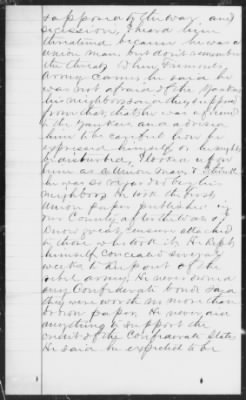 opponent of the war, and
secession, I heard him
threatened because he was a
union man. but dont remember
the threats. When Grimmer's
Army came he said he
was not afraid of the Yankees
his neighbors
from that, that he was a friend
to the Yankees and advised
him to be careful how he
expressed himself or he might
be disturbed, I looked upon
him as a Union man, & I think
he was so regarded by his
neighbors. He took the first
Union paper published in
our County after the war &
I know great censure attached
to those who took it. He kept
himself concealed several
weeks to keep out of the
rebel army. He never owned
any Confederate bond said
they were worth no more than
brown paper. He never did
anything to support the
credit of the Confederate States
He said he expected to be